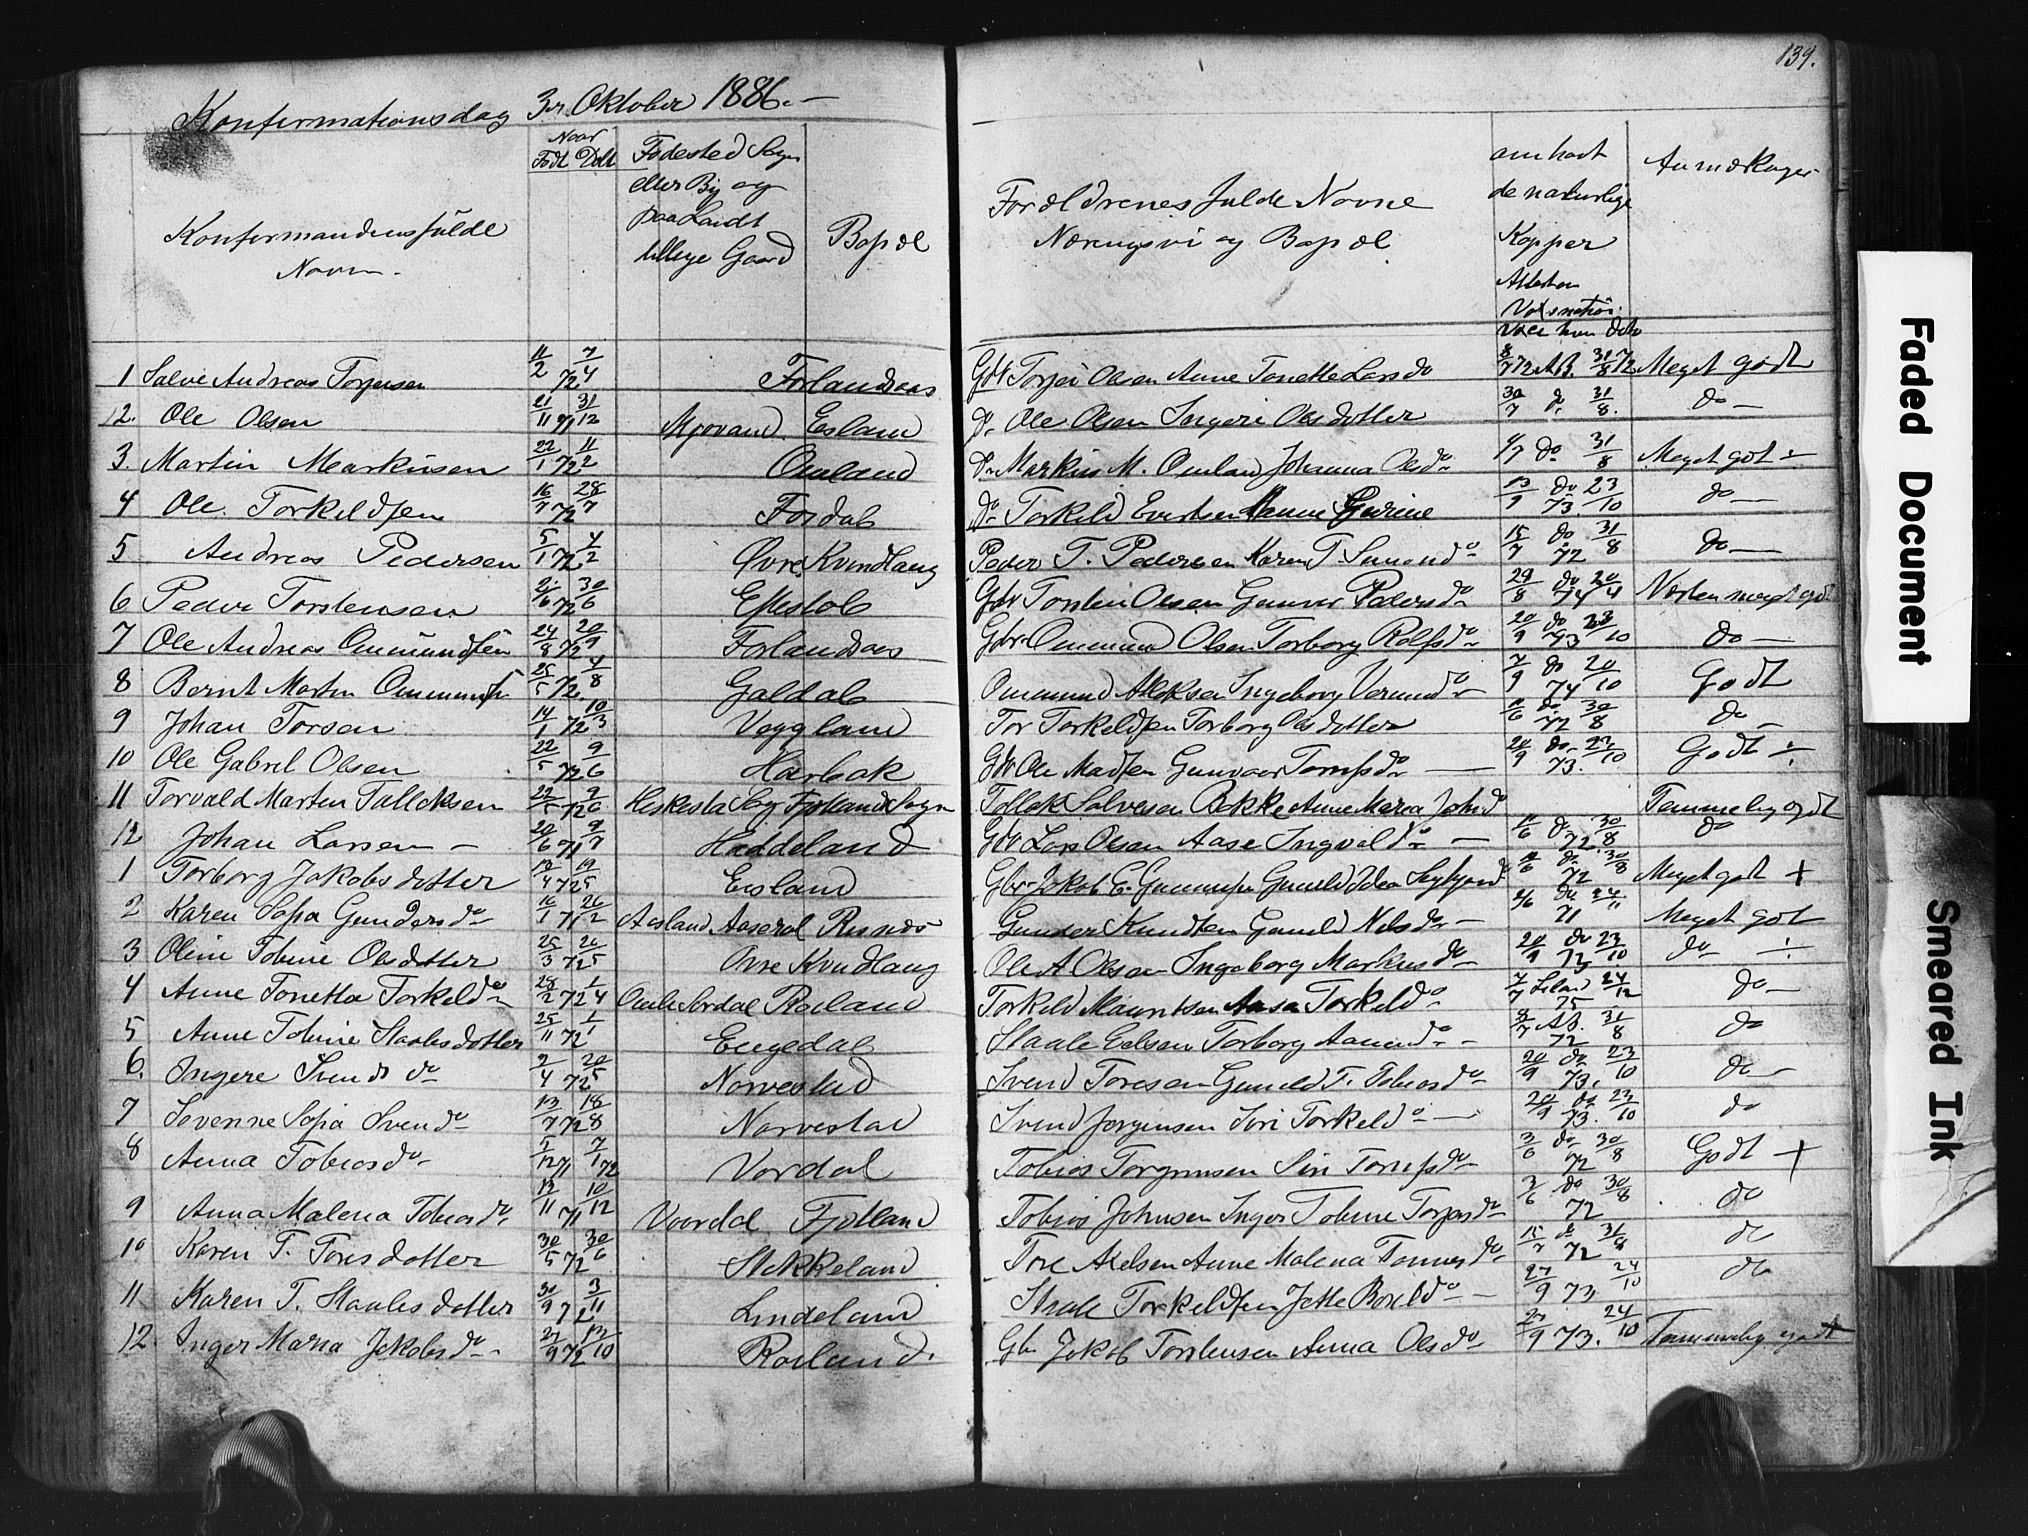 139.
Konfirmationsdag 3die Oktober 1886.
Naar
Født Døbt
Fødested Sogn
eller By og
paa Landt
tillige Gaard
Konfirmandens fulde
Navn.
Bopæl
Forældrenes fulde Navne
Næringsvei og Bopæl
om havt
de naturlige
Kopper
Attest om
Anmærkninger
1 Salve Andreas Torjusen 11/2 72 7/4 Forlandsaas Torjus Olsen Anne Tonette Larsdo 8/7 72 AB. 31/8 72 Meget godt
2. Ole Olsen 21/11 71 31/12 Mjovand Eisland do Ole Olsen Ingeri Olsdotter 30/7 do 31/8. do
3. Martin Markusen 22/1 72 11/2 Omland do Markus M. Omland Johanna Olsdo do 31/8 Meget got
4 Ole Torkeldsen 16/7 72 28/7 Fosdal do Torkeld Evertsen Hanne Gurine 13/9 do 73. 23/10 do
5 Andreas Pedersen 5/1 72 4/2 Øvre Kvindlaug Peder T. Pedersen Karen T. Samondo 15/7 do 72 31/8 do
6 Peder Torstensen 2/6 72 30/6 Eftestøl Torsten Olsen Gunvor Pedersdo 29/8 do 74 20/4 Næsten meget godt
7 Ole Andreas Ommundsen 24/8 72 20/9 Forlandsaas Gbr Ommund Olsen Torborg Rolfsdo 20/9 do 73 23/10 do
8 Bernt Martin Ommunds 25/5 72 4/8 Galdal Ommund Alleksen Ingeborg Vermundo 7/9 do 74 20/10 Godt
9 Johan Torsen 14/1 72 10/3 Veggland Tor Torkeldsen Torborg Olsdotter do 72 30/8 do
10 Ole Gabriel Olsen 22/5 72 9/6 Hærbak Ole Madsen Gunvor 20/9 do 73. 23/10 Godt
11 Torvald Martin Salleksen 22/5 72 9/6 Heskestad Sogn Fjotland Sogn Tollak Salvesen Bakke Anne Maria Johndo Temmelig godt
12 Johan Larsen 20/6 71 9/7 Haddeland Lars Olsen Aase Ingvaldo do 72. 30/8 do
1 Torborg Jakobsdotter 13/4 72 19/5 Eisland Gbr Jakob E. Gunuld do 72 30/8 Meget got +
2 Karen Sofia Gundersdo 16/1 71 26/2 Aasland Aaseral Risnes Gunder Knudsen Gunild Nilsdo do 71 24/11 Meget got
3 Oline Tobine Olsdotter 25/3 72 20/5 Øvre Kvindlaug Ole A Olsen Ingeborg Markusdo 20/9 do 73 23/10 do
4 Anne Tonetta Torkeldo 25/2 72 1/4 Roiland Torkeld Mauritsen Aasa Torkeldo 7/7 75 24/12 do
5 Anne Tobine Staalesdotter 25/11 72 1/1 Eiegedal Staale Eelsen Torborg Aamundo 8/7 AB. 72 31/8 do
6. Ingere Svends do 2/4 72 20/5 Narvestad Svend Toresen Guneld T. Tobiasdo 20/9 do 73. 23/10 do
7 Severine Sofia Svendo 13/7 72 18/8 Narvestad Svend Jørgensen Siri Torkeldo 20/9 do 73. 23/10 do
8 Anna Tobiasdo 5/12 71 7/1 72 Vordal Tobias Torgrimsen Siri 3/6 do 72 30/8 Godt +
9 Anna Malena Tobiasdo 13/11 71 10/12 Voordal Fjotland Tobias Johnsen Inger Tobine Torjusdo 3/6 do 72 30/8 do
10 Karen T. Toresdotter 30/5 72 30/6 Stakkeland Tore Axelsen Anne Malena Tonnesdo 15/7 do 72 31/8 do
11 Karen T. Staalesdotter 30/9 72 3/11 Lindeland Staale Torkeldsen Jette Boieldo 27/9 73 24/10 do
12. Inger Maria Jakobsdo 27/9 72 13/10 Roiland. Gbr Jakob Torstensen Anna Olsdo 27/9 73. 24/10 Temmelig godt
Faded Document
Smeared Ink